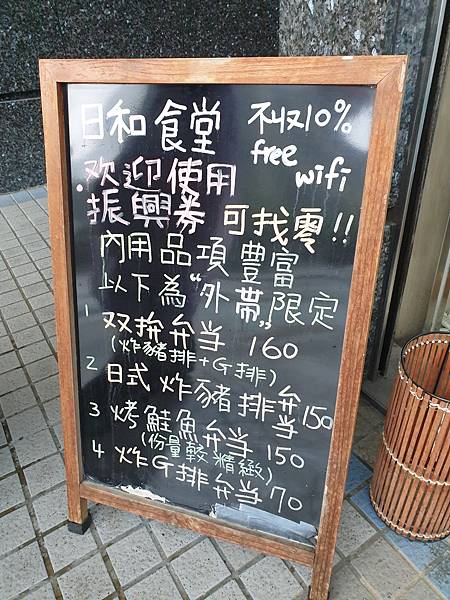 日和食堂 不收10%
free wifi
.欢迎使用
振興券 可找零!!
內用品項豐富
以下為“外帶”限定
1 双拼弁当 160
(炸豬排+G排)
2 日式炸豬排弁当 150
3 烤鮭魚弁当 150
(份量較精緻)
4 炸G排弁当 70